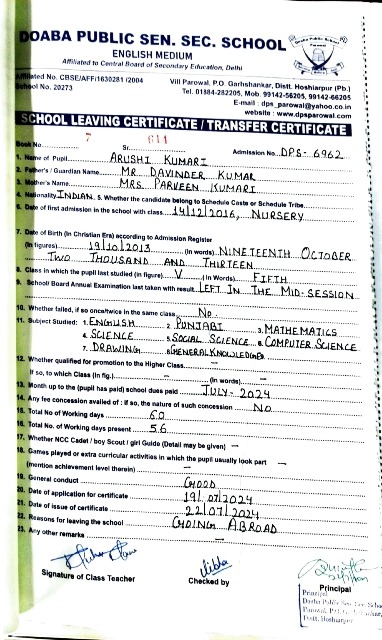 DOABA PUBLIC SEN. SEC. SCHOOL
ENGLISH MEDIUM
Affiliated to Central Board of Secondary Education, Delhi
Affiliated No. CBSE/AFF/1630281 /2004
School No. 20273
Vill Parowal, P.O. Garhshankar, Distt. Hoshiarpur (Pb.)
Tel. 01884-282205, Mob. 99142-56205, 99142-66205
E-mail : dps_parowal@yahoo.co.in
website : www.dpsparowal.com
SCHOOL LEAVING CERTIFICATE / TRANSFER CERTIFICATE
Book No. 7 Sr. 611 Admission No. DPS-6962
1. Name of Pupil ARUSHI KUMARI
2. Father's / Guardian Name MR. DAVINDER KUMAR
3. Mother's Name MRS. PARVEEN KUMARI
4. Nationality INDIAN 5. Whether the candidate belong to Schedule Caste or Schedule Tribe
6. Date of first admission in the school with class 14/12/2016, NURSERY
7. Date of Birth (in Christian Era) according to Admission Register
(In figures) 19/10/2013 (In words) NINETEENTH OCTOBER
TWO THOUSAND AND THIRTEEN
8. Class in which the pupil last studied (in figure) V (in Words) FIFTH
9. School Board Annual Examination last taken with result LEFT IN THE MID-SESSION
10. Whether failed, if so once/twice in the same class No
11. Subject Studied: 1. ENGLISH 2. PUNJABI 3. MATHEMATICS
4. SCIENCE 5. SOCIAL SCIENCE 6. COMPUTER SCIENCE
7. DRAWING 8. GENERAL KNOWLEDGE
12. Whether qualified for promotion to the Higher Class –
If so, to which Class (In fig.) – (In words) –
13. Month up to the (pupil has paid) school dues paid JULY-2024
14. Any fee concession availed of : if so, the nature of such concession NO
15. Total No. of Working days 60
16. Total No. of Working days present 56
17. Whether NCC Cadet / boy Scout / girl Guide (Detail may be given) –
18. Games played or extra curricular activities in which the pupil usually took part
(mention achievement level therein) –
19. General conduct GOOD
20. Date of application for certificate 19/07/2024
21. Date of issue of certificate 22/07/2024
22. Reasons for leaving the school GOING ABROAD
23. Any other remarks –
Signature of Class Teacher
Checked by
Principal
Principal
Doaba Public Sen. Sec. School
Distt. Hoshiarpur